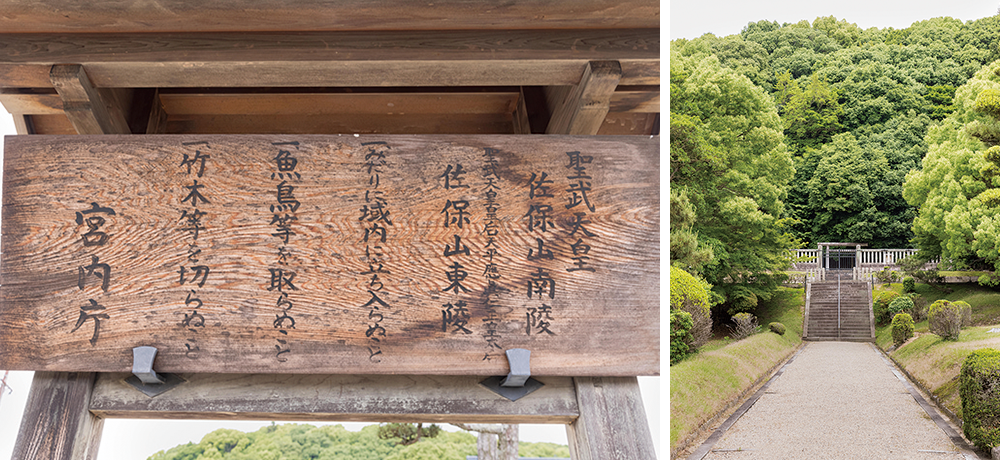 聖武天皇
佐保山南陵
聖武天皇皇后天平應眞仁正皇太后
佐保山東陵
一みだりに域内に立ち入らぬこと
一魚鳥等を取らぬこと
一竹木等を切らぬこと
宮内庁